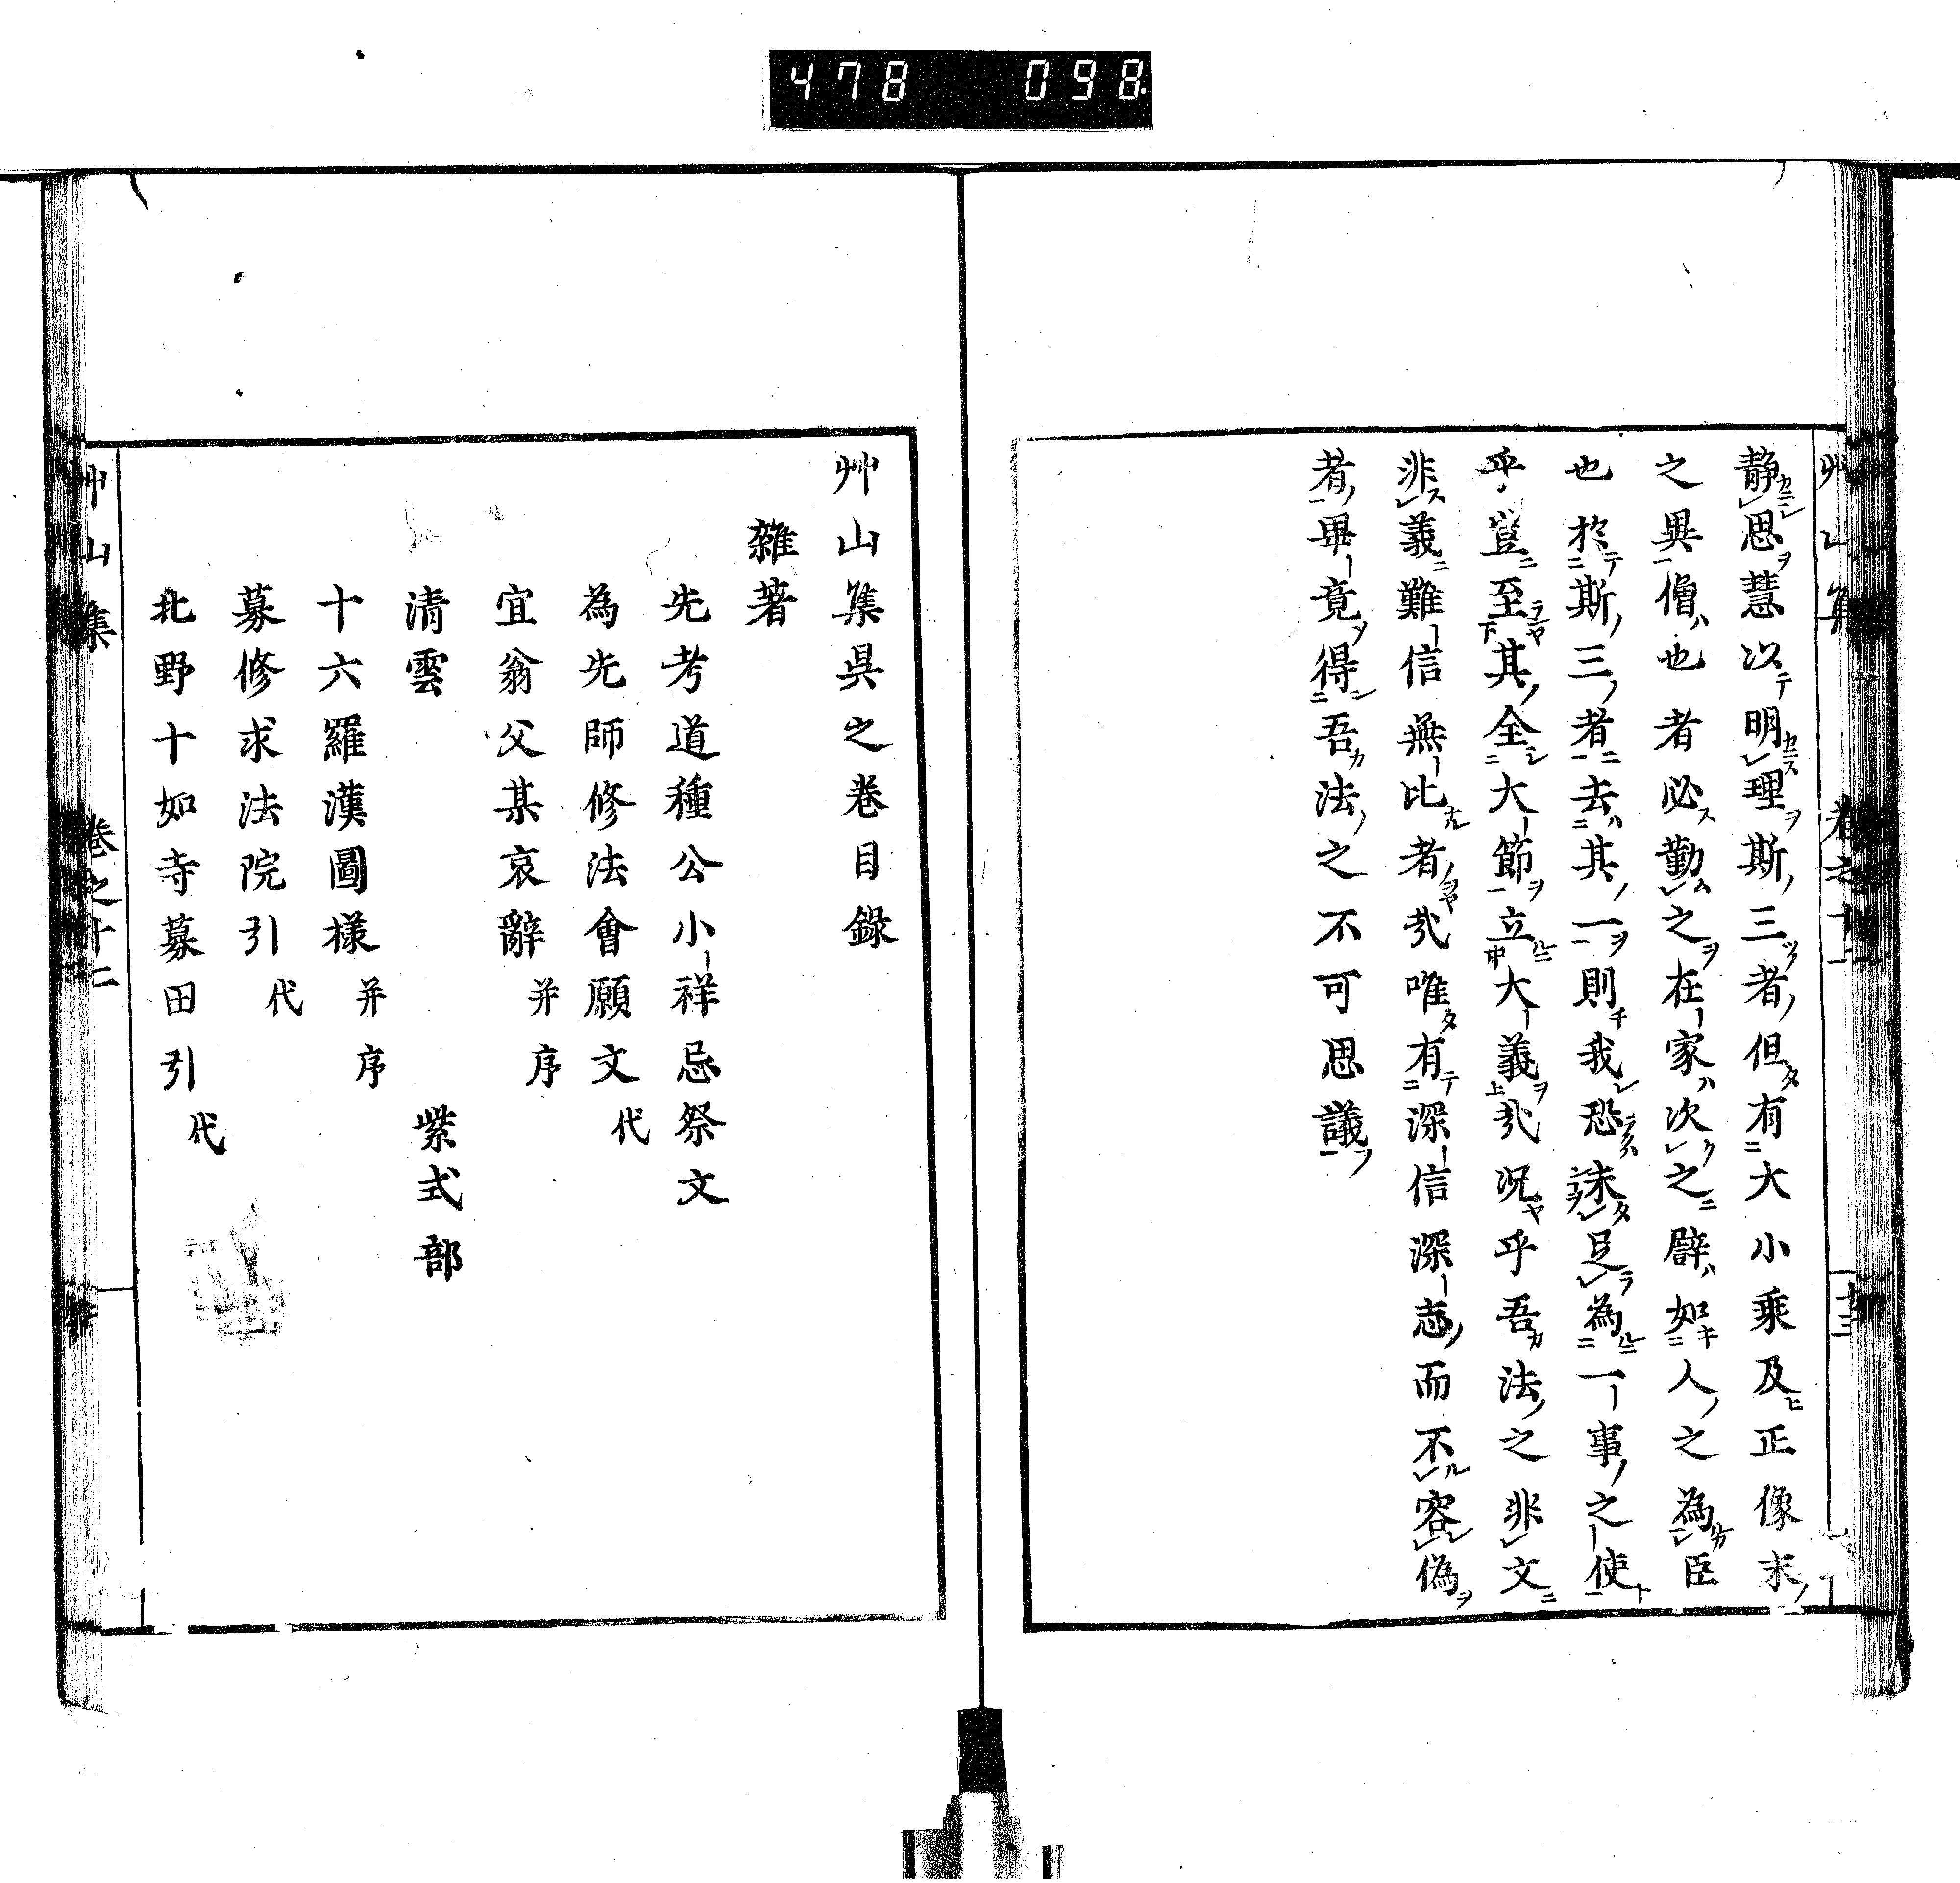 478 098
静思慧以明理斯三者但有大小乘及正像末
之異僧也者必勤之在家次之辟如人之為臣
也於斯三者去其一則我恐未足為一事之使
乎豈至其全大節立大義㢤况乎吾法之非文
非義難信無比者㢤唯有深信深志而不容偽
者畢竟得吾法之不可思議
艸山集吳之卷目錄
雜著
先考道種公小祥忌祭文
為先師修法會願文 代
宜翁父某哀辭 并序
清雲 紫式部
十六羅漢圖樣 并序
募修求法院引 代
北野十如寺募田引 代
艸山集 卷之十二